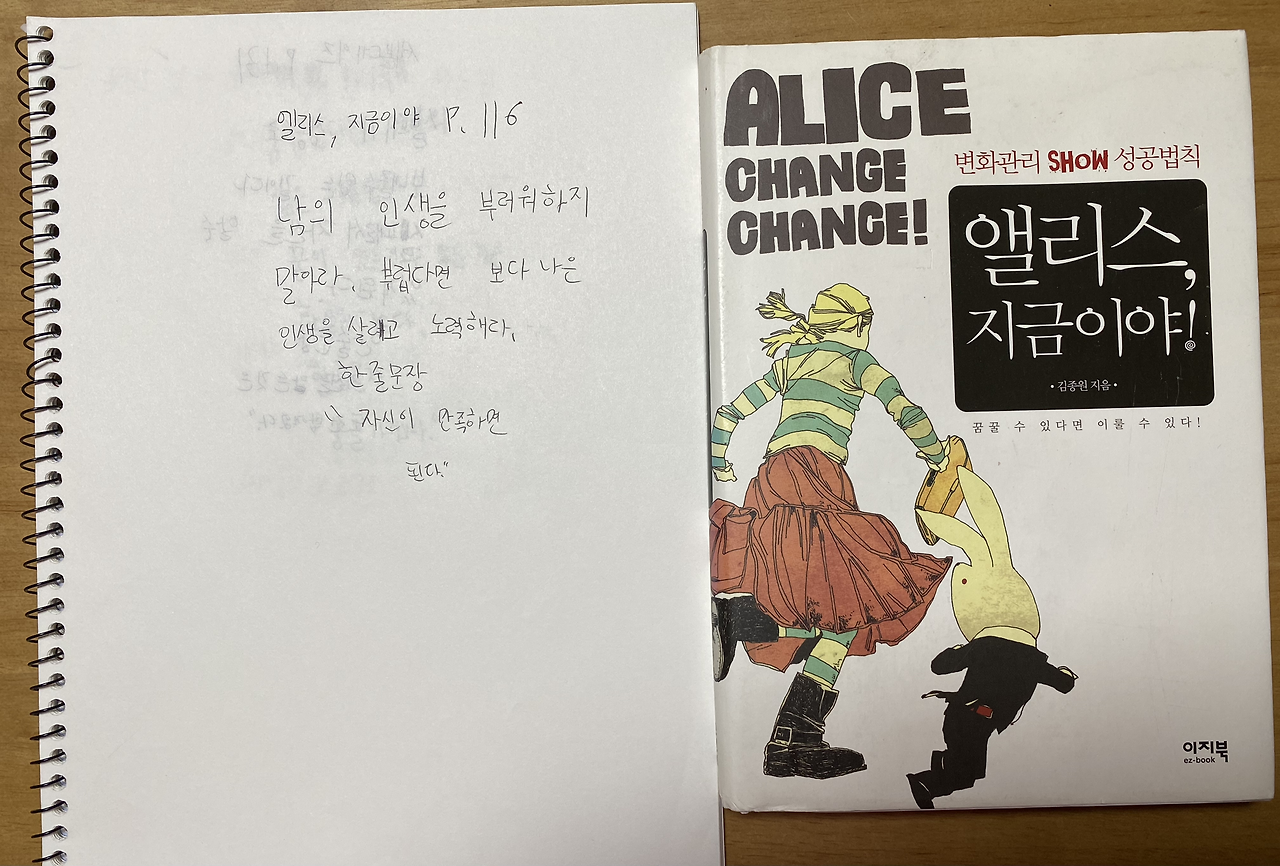 엘리스, 지금이야 P. 116
남의 인생을 부러워하지
말아라, 부럽다면 보다 나은
인생을 살려고 노력해라,
한줄문장
나 자신이 만족하면
된다."
ALICE
CHANGE
CHANGE!
변화관리 SHOW 성공법칙
앨리스,
지금이야!
• 김종원 지음 •
꿈꿀 수 있다면 이룰 수 있다!
이지북
ez-book